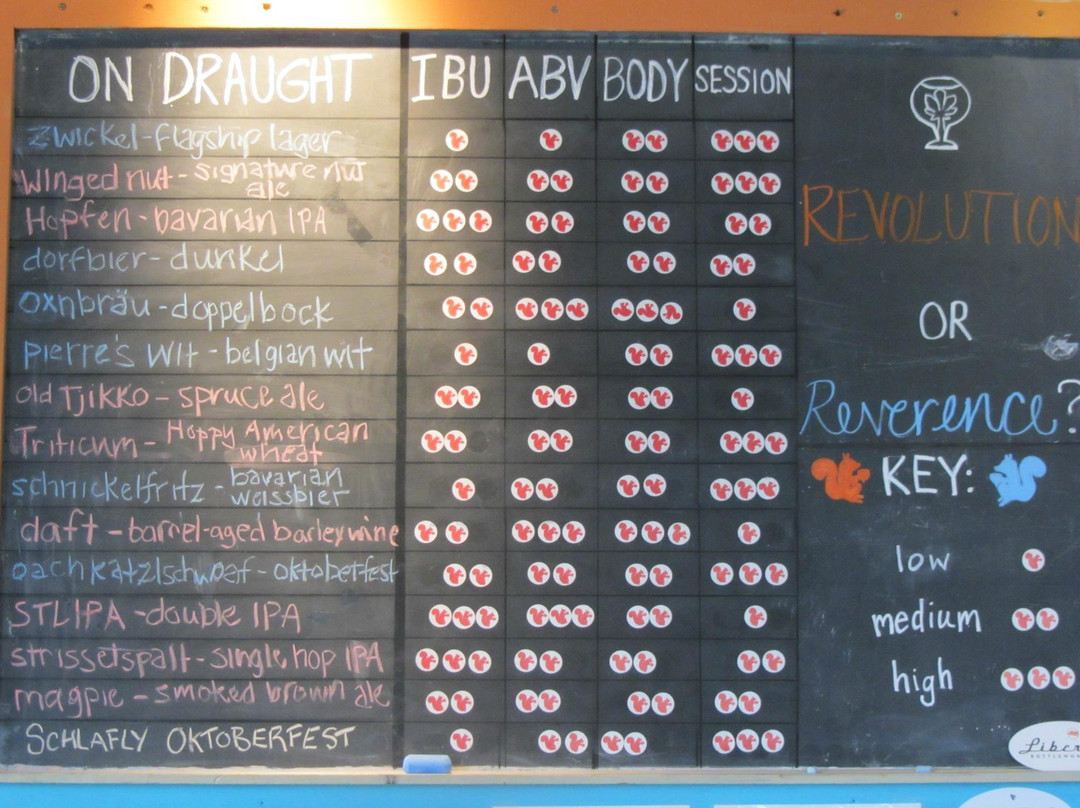 ON DRAUGHT IBU ABV BODY SESSION
zwickel-flagship lager
winged nut - signature nut
ale
Hopfen - bavarian IPA
dorfbier - dunkel
oxnbräu - doppelbock
pierre's wit - belgian wit
old Tjikko - spruce ale
Triticum - Hoppy American
wheat
schnickelfritz - bavarian
weissbier
daft - barrel-aged barleywine
oachkatzlschwoaf - oktoberfest
STLIPA - double IPA
strissetspalt - single hop IPA
magpie - smoked brown ale
SCHLAFLY OKTOBERFEST
REVOLUTION
OR
Reverence?
KEY:
low
medium
high